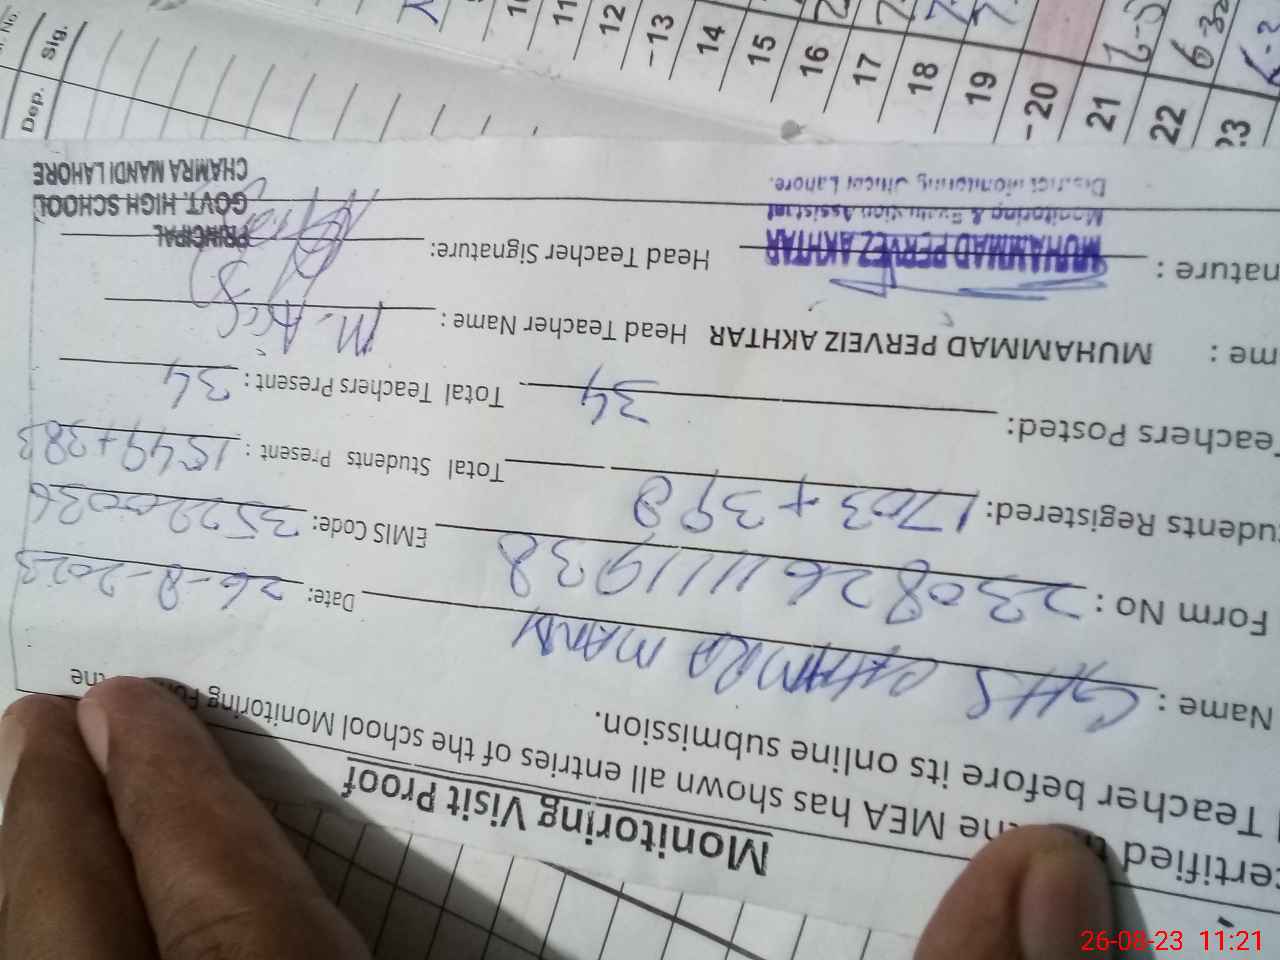 Monitoring Visit Proof
ertified the MEA has shown all entries of the school Monitoring Form the
Teacher before its online submission.
Name : GHS CHAMRA MANDI Date: 26-8-2023
Form No : 230826111938 EMIS Code: 35220036
udents Registered: 1703 + 398 Total Students Present : 1549 + 383
eachers Posted: 34 Total Teachers Present : 34
me : MUHAMMAD PERVEIZ AKHTAR Head Teacher Name : M.
nature : Head Teacher Signature:
MUHAMMAD PERVEZ AKHTAR
Monitoring & Evaluation Assistant
District Monitoring Officer Lahore.
PRINCIPAL
GOVT. HIGH SCHOOL
CHAMRA MANDI LAHORE
Dep. Sig.
11 12 -13 14 15 16 17 18 19 -20 21 22 23
26-08-23 11:21